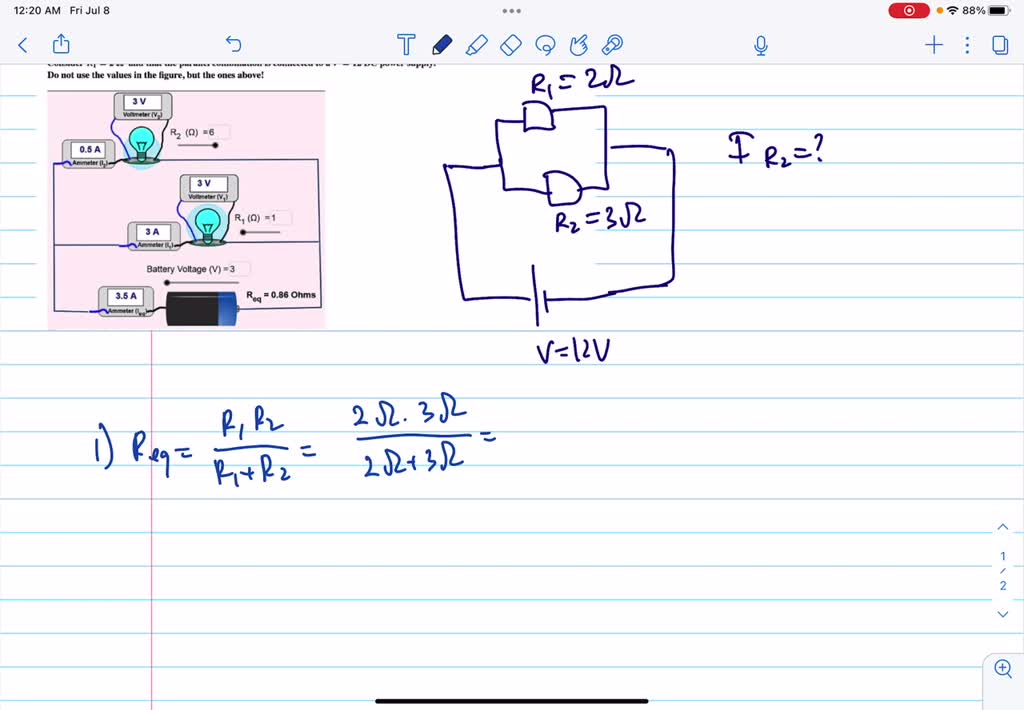 12:20 AM Fri Jul 8
88%
Do not use the values in the figure, but the ones above!
3 V
Voltmeter (V₂)
R₂ (Ω) =6
0.5 A
Ammeter (I₂)
3 V
Voltmeter (V₁)
R₁ (Ω) =1
3 A
Ammeter (I₁)
Battery Voltage (V) =3
3.5 A
Ammeter (Ieq)
Req = 0.86 Ohms
R₁ = 2Ω
R₂ = 3Ω
V=12V
I R₂ = ?
1) Req = R₁ R₂ / R₁+R₂ = 2Ω . 3Ω / 2Ω+3Ω =
1
/
2